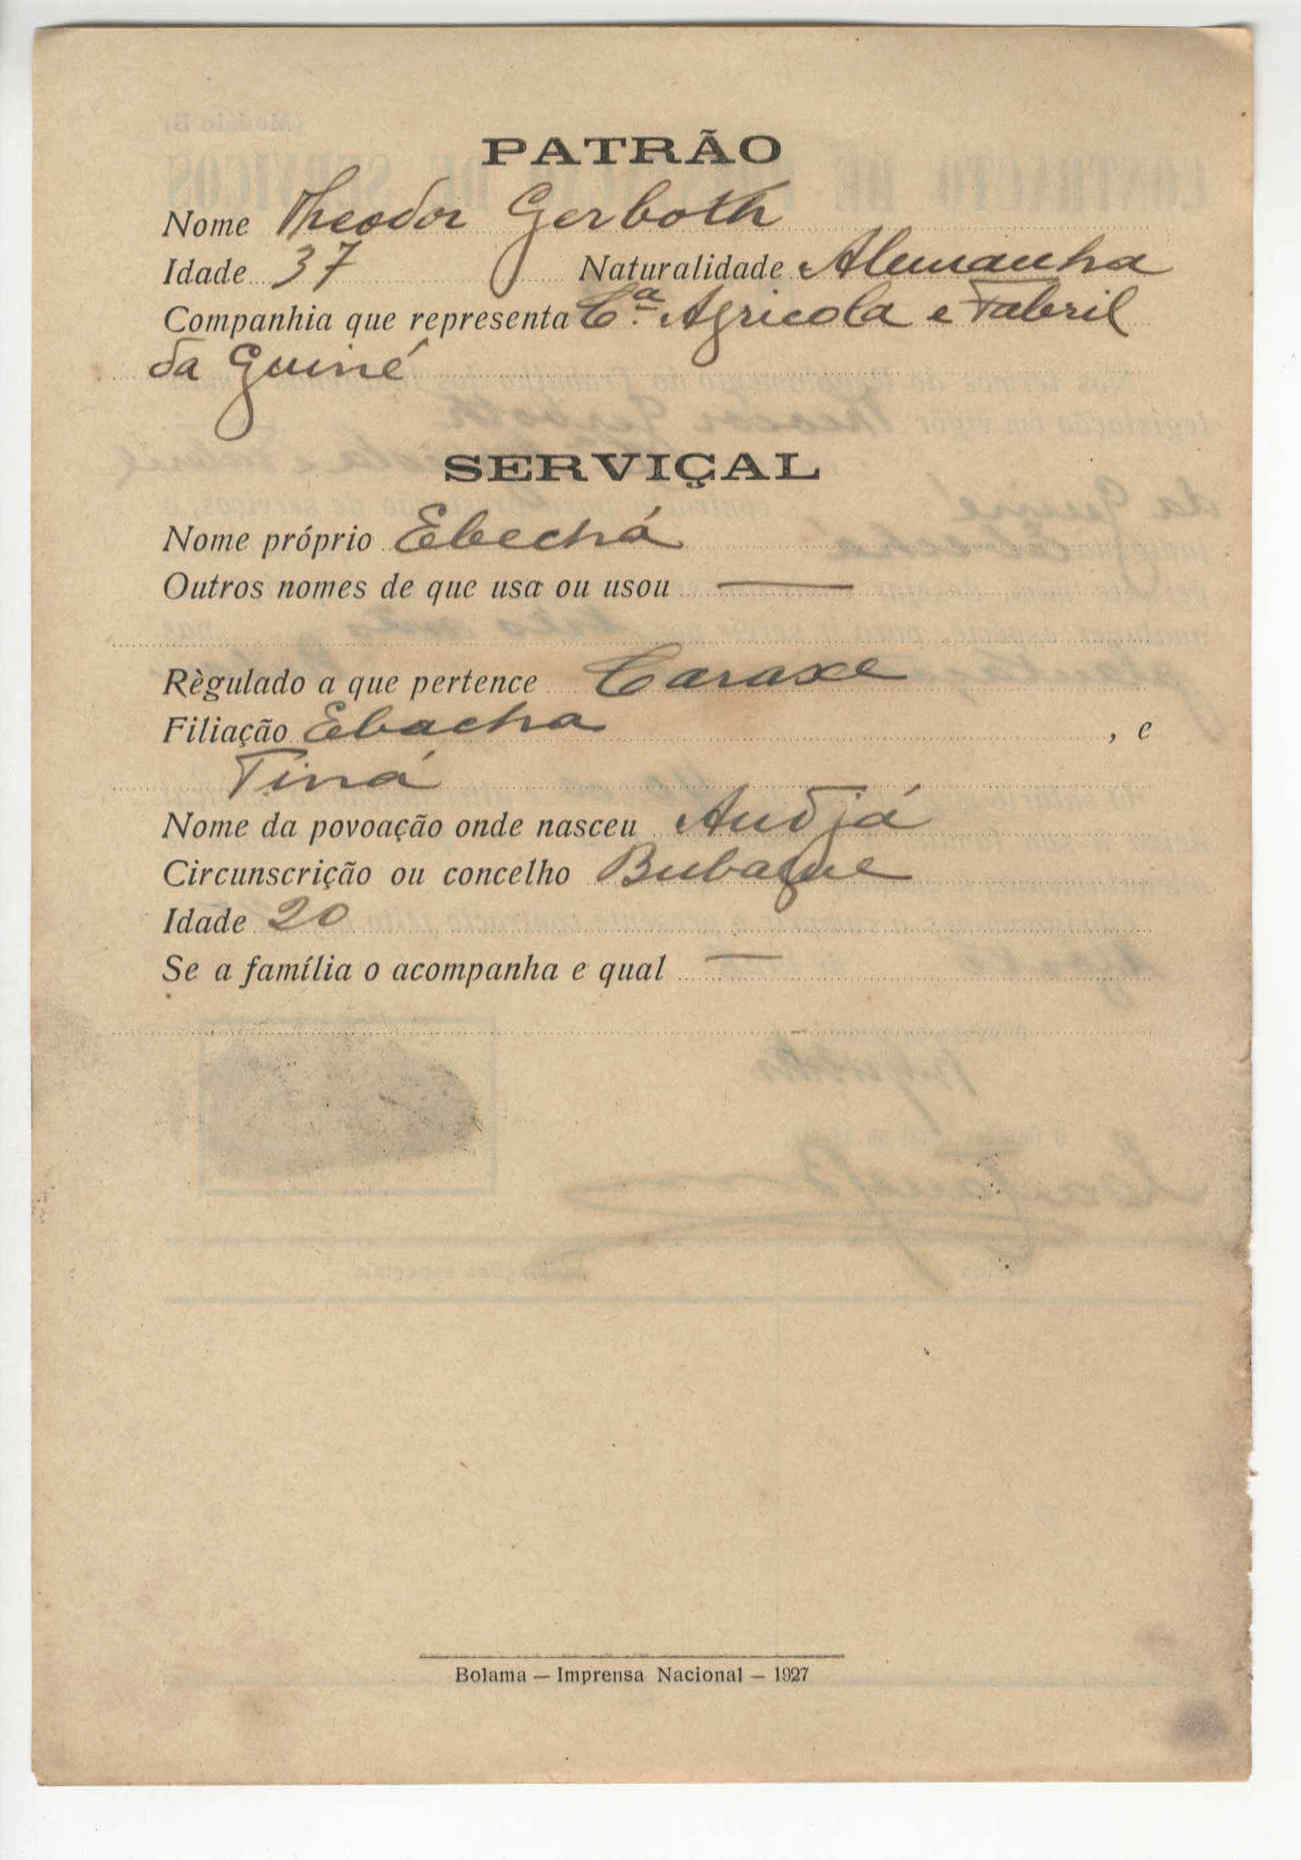 PATRÃO
Nome Theodor Gerboth
Idade 37 Naturalidade Alemanha
Companhia que representa Cª. Agricola e Fabril
da Guiné
SERVIÇAL
Nome próprio Ebechá
Outros nomes de que usa ou usou —
Règulado a que pertence Caraxe
Filiação Ebacha , e
Tiná
Nome da povoação onde nasceu Andjá
Circunscrição ou concelho Bubaque
Idade 20
Se a família o acompanha e qual —
Bolama — Imprensa Nacional — 1927